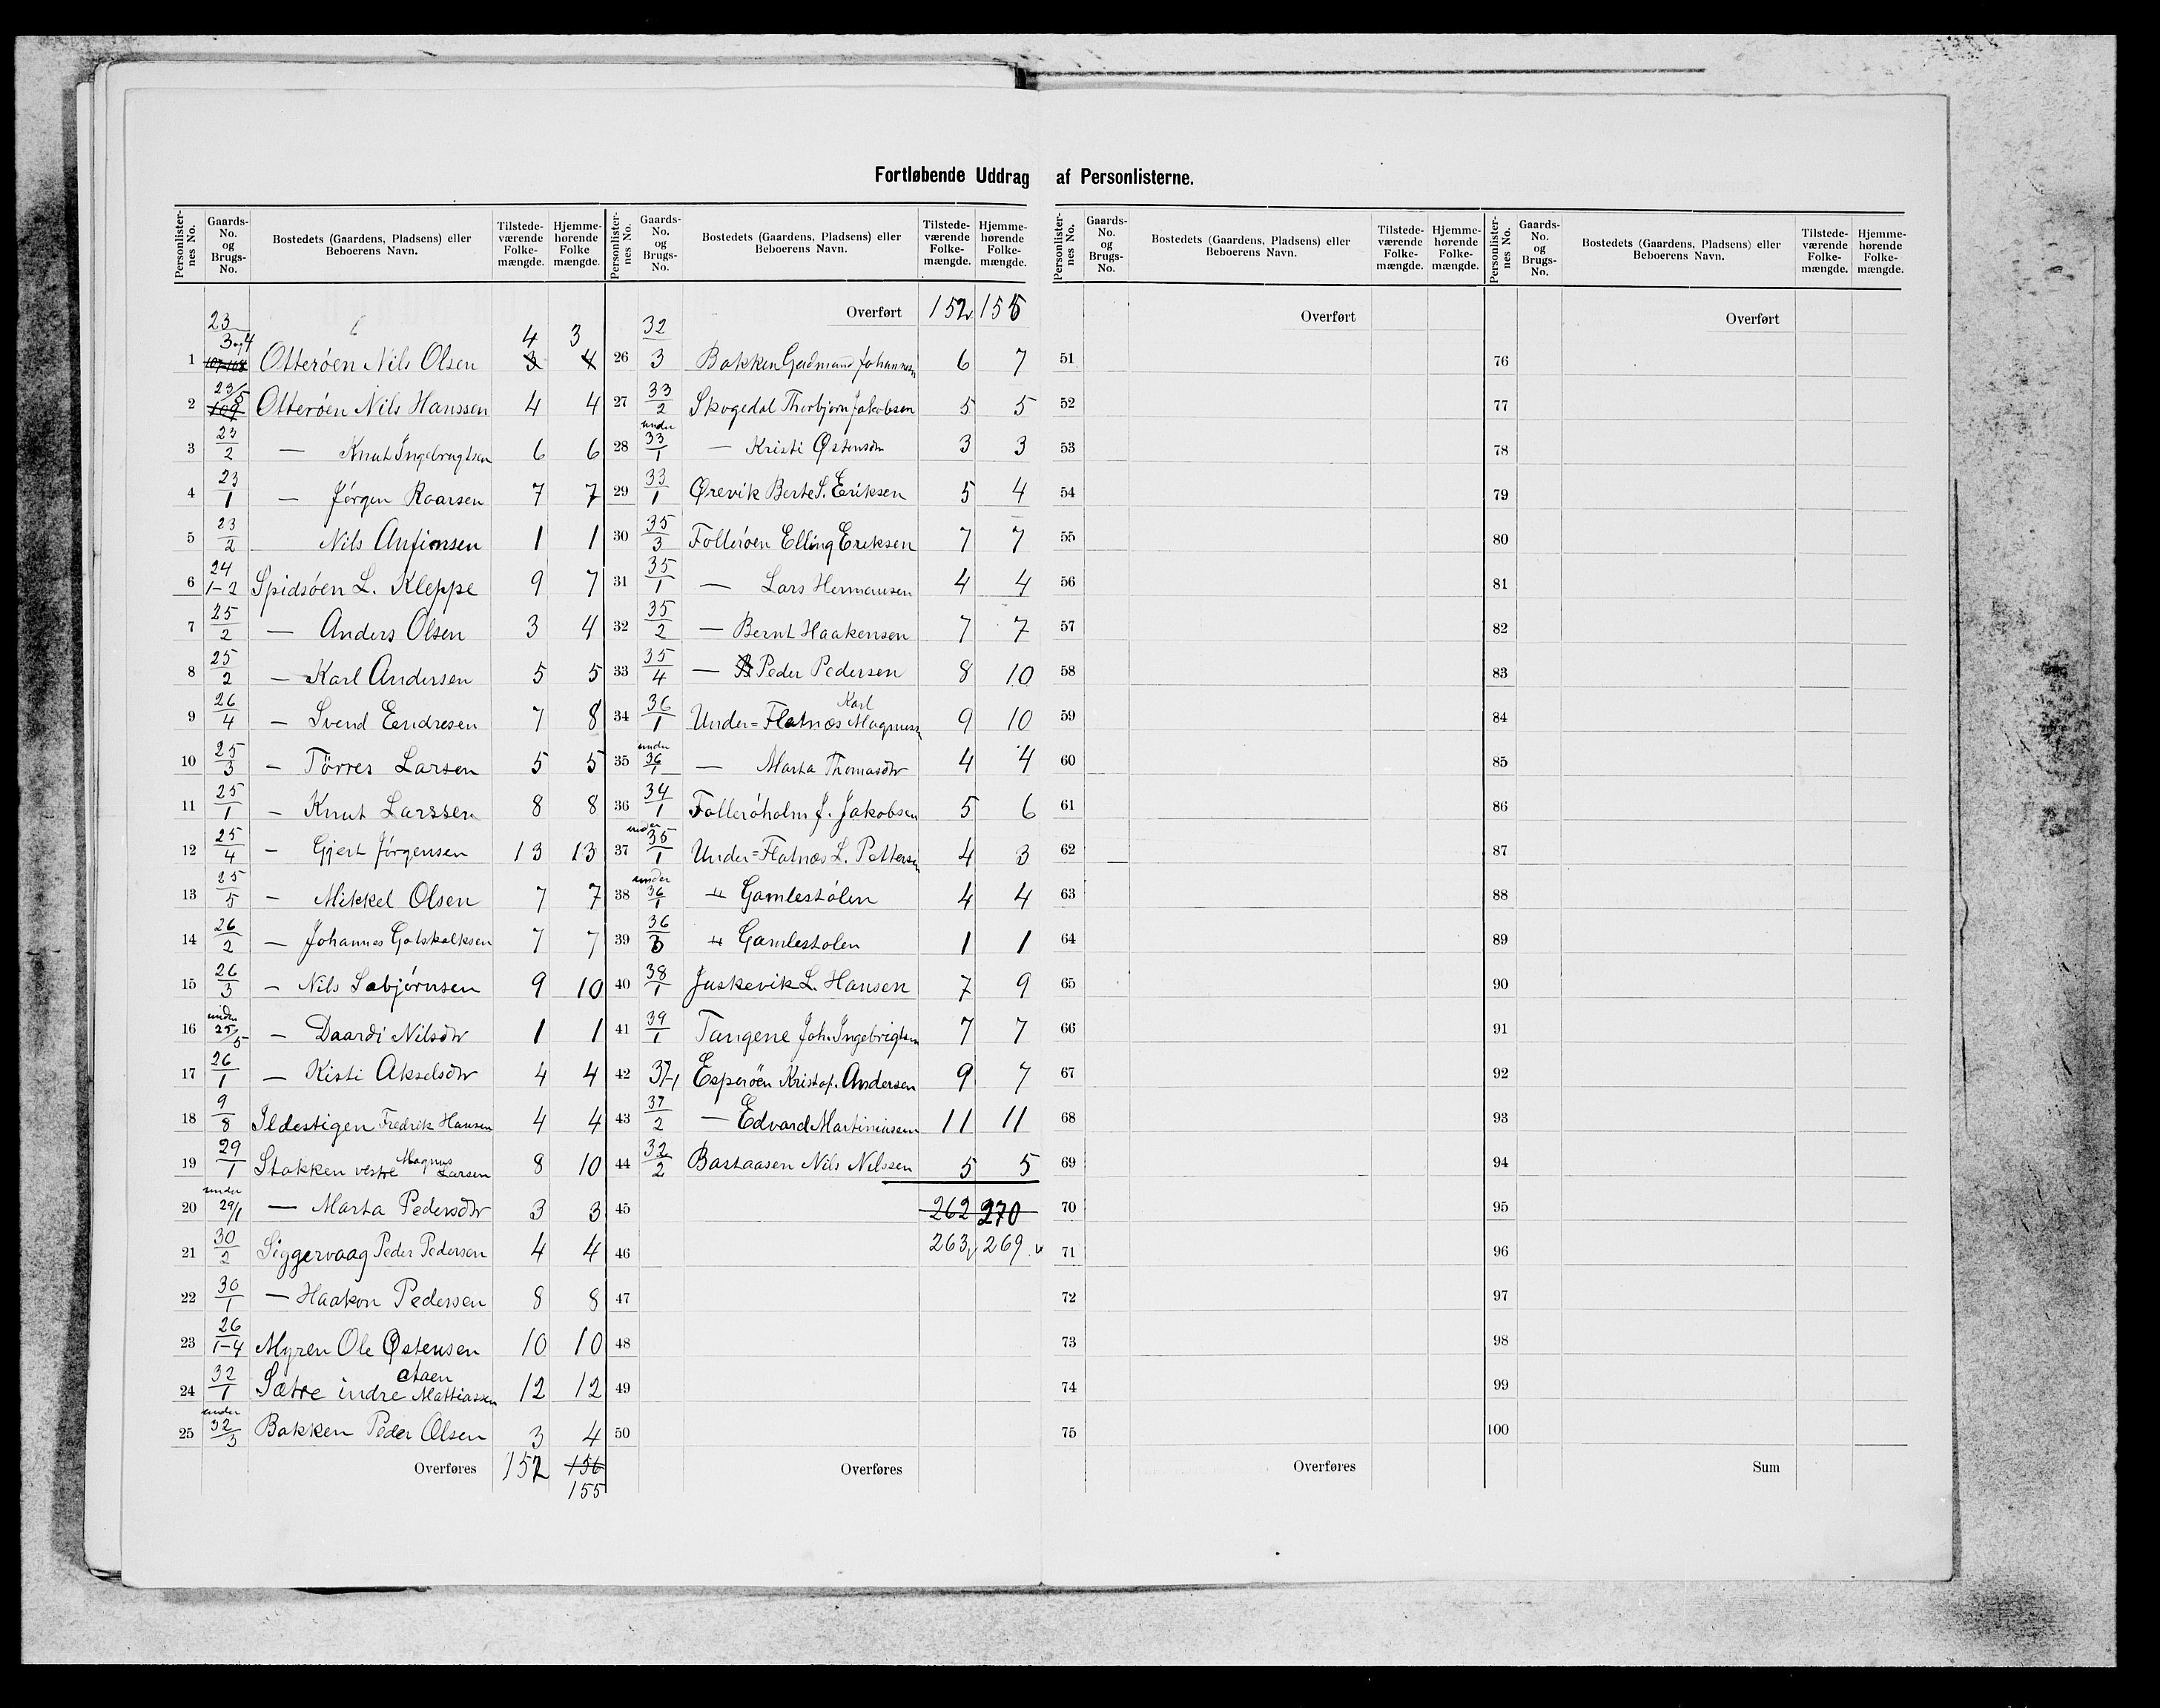 Fortløbende Uddrag af Personlisterne.
Personlister-nes No. | Gaards-No. og Brugs-No. | Bostedets (Gaardens, Pladsens) eller Beboerens Navn. | Tilstede-værende Folke-mængde. | Hjemme-hørende Folke mængde.
1 | 23 3 og 4 107-108 | Otterøen Nils Olsen | 4 3 | 3 4
2 | 23/5 109 | Otterøen Nils Hanssen | 4 | 4
3 | 23/2 | — Knut Ingebrugtsen | 6 | 6
4 | 23/1 | — Jørgen Roarsen | 7 | 7
5 | 23/2 | Nils Anfinnsen | 1 | 1
6 | 24 1-2 | Spidsöen L. Kleppe | 9 | 7
7 | 25/2 | — Anders Olsen | 3 | 4
8 | 25/2 | — Karl Andersen | 5 | 5
9 | 26/4 | — Svend Eendresen | 7 | 8
10 | 25/3 | — Törres Larsen | 5 | 5
11 | 25/1 | — Knut Larssen | 8 | 8
12 | 25/4 | — Gjert Jørgensen | 13 | 13
13 | 25/5 | — Mikkel Olsen | 7 | 7
14 | 26/2 | — Johannes Gotskalksen | 7 | 7
15 | 26/3 | — Nils Sabjørnsen | 9 | 10
16 | under 25/5 | — Daardi Nilsdtr | 1 | 1
17 | 26/1 | — Kisti Akselsdtr | 4 | 4
18 | 9/8 | Ildestigen Fredrik Hansen | 4 | 4
19 | 29/1 | Stokken vestre Magnus Larsen | 8 | 10
20 | under 29/1 | — Marta Pedersdtr | 3 | 3
21 | 30/2 | Siggervaag Peder Pedersen | 4 | 4
22 | 30/1 | — Haakon Pedersen | 8 | 8
23 | 26 1-4 | Myren Ole Østensen | 10 | 10
24 | 32/1 | Sætre indre Mattiassen | 12 | 12
25 | under 32/3 | Bakken Peder Olsen | 3 | 4
Overføres | 152 | 156 155
Personlister-nes No. | Gaards-No. og Brugs-No. | Bostedets (Gaardens, Pladsens) eller Beboerens Navn. | Tilstede-værende Folke-mængde. | Hjemme-hørende Folke-mængde.
Overført | 152 | 155
26 | 32 3 | Bakken Gudmund Johannesn | 6 | 7
27 | 33/2 | Skogedal Thorbjørn Jakobsen | 5 | 5
28 | under 33/1 | — Kristi Østensdtr | 3 | 3
29 | 33/1 | Ørevik Berte S. Eriksen | 5 | 4
30 | 35/3 | Folleröen Elling Ereksen | 7 | 7
31 | 35/1 | — Lars Hermansen | 4 | 4
32 | 35/2 | — Bernt Haakensen | 7 | 7
33 | 35/4 | — Peder Pedersen | 8 | 10
34 | 36/1 | Under=Flatnæs Karl Magnussn | 9 | 10
35 | under 36/1 | — Marta Thomasdtr | 4 | 4
36 | 34/1 | Folleröholm J. Jakobsen | 5 | 6
37 | under 35/1 | Under=Flatnæs L. Pettersn | 4 | 3
38 | under 36/1 | " Gamlestølen | 4 | 4
39 | 36/3 | " Gamlestølen | 1 | 1
40 | 38/1 | Juskevik L. Hansen | 7 | 9
41 | 39/1 | Tangene Joh. Ingebrigtsn | 7 | 7
42 | 37-1 | Esperöen Kristof. Andersen | 9 | 7
43 | 37/2 | — Edvard Martiniusen | 11 | 11
44 | 32/2 | Bastaasen Nils Nilssen | 5 | 5
45 | 262 | 270
46 | 263 | 269
47
48
49
50
Overføres
Personlister-nes No. | Gaards-No. og Brugs-No. | Bostedets (Gaardens, Pladsens) eller Beboerens Navn. | Tilstede-værende Folke-mængde. | Hjemme-hørende Folke-mængde.
Overført
51
52
53
54
55
56
57
58
59
60
61
62
63
64
65
66
67
68
69
70
71
72
73
74
75
Overføres
Personlister-nes No. | Gaards-No. og Brugs-No. | Bostedets (Gaardens, Pladsens) eller Beboerens Navn. | Tilstede-værende Folke-mængde. | Hjemme-hørende Folke-mængde.
Overført
76
77
78
79
80
81
82
83
84
85
86
87
88
89
90
91
92
93
94
95
96
97
98
99
100
Sum